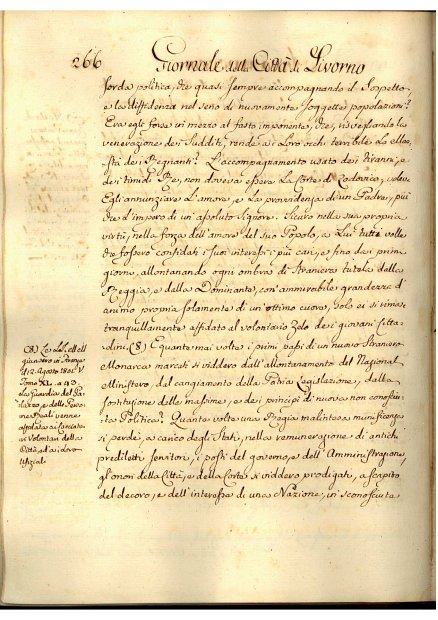 266 Giornale della Città di Livorno
sorda politica, che quasi sempre accompagnando il Sospetto,
e la diffidenza nel seno di nuovamente soggette popolazioni?
Era egli forse in mezzo al fasto imponente, che, risvegliando la
venerazione dei Sudditi, rende ai Loro occhi terribile La Mae,,
stà dei Regnanti? L'accompagnamento usato dei tiranni, e
dei timidi Re, non doveva essere La Corte di Lodovico, voleva
Egli annunziare L'amore, e La provvidenza di un Padre, più
che l'impero di un assoluto Signore. Sicuro nella sua propria
virtù, nella forza dell'amore del suo Popolo, a Lui tutti volle
che fossero confidati i suoi interessi i più cari, e fino dai primi
giorni, allontanando ogni ombra di Straniera tutela dalla
Reggia, e dalla Dominante, con ammirabile grandezza d'
animo propria solamente di un'ottimo cuore, solo ei si rimase
tranquillamente affidato al volontario zelo dei giovani Citta,,
dini (8) E quante mai volte i primi passi di un nuovo Straniero
Monarca marcati si viddero dall'allontanamento del National
Ministero, dal cangiamento della Patria Legislazione, dalla
sostituzione delle massime, e dei principj di nuova non conosciu,,
ta Politica? Quante volte una Regia malintesa munificenza
si perdè, a carico degli Stati, nella remunerazione di antichi
prediletti servitori, i posti del governo, e dell'Amministrazione,
gl'onori della Città, e della Corte si viddero prodigati, a scapito
del decoro, e dell'interesse di una Nazione, in sconosciute
(8) Le LL. MM.
giunsero in Firenze
il 12. Agosto 1801. V.
Tomo XL. a 43
La Guardia del Pa,,
lazzo, e delle Perso,,
ne Reali venne
affidata ai
Volontari della
Città, ed ai loro
Uffiziali